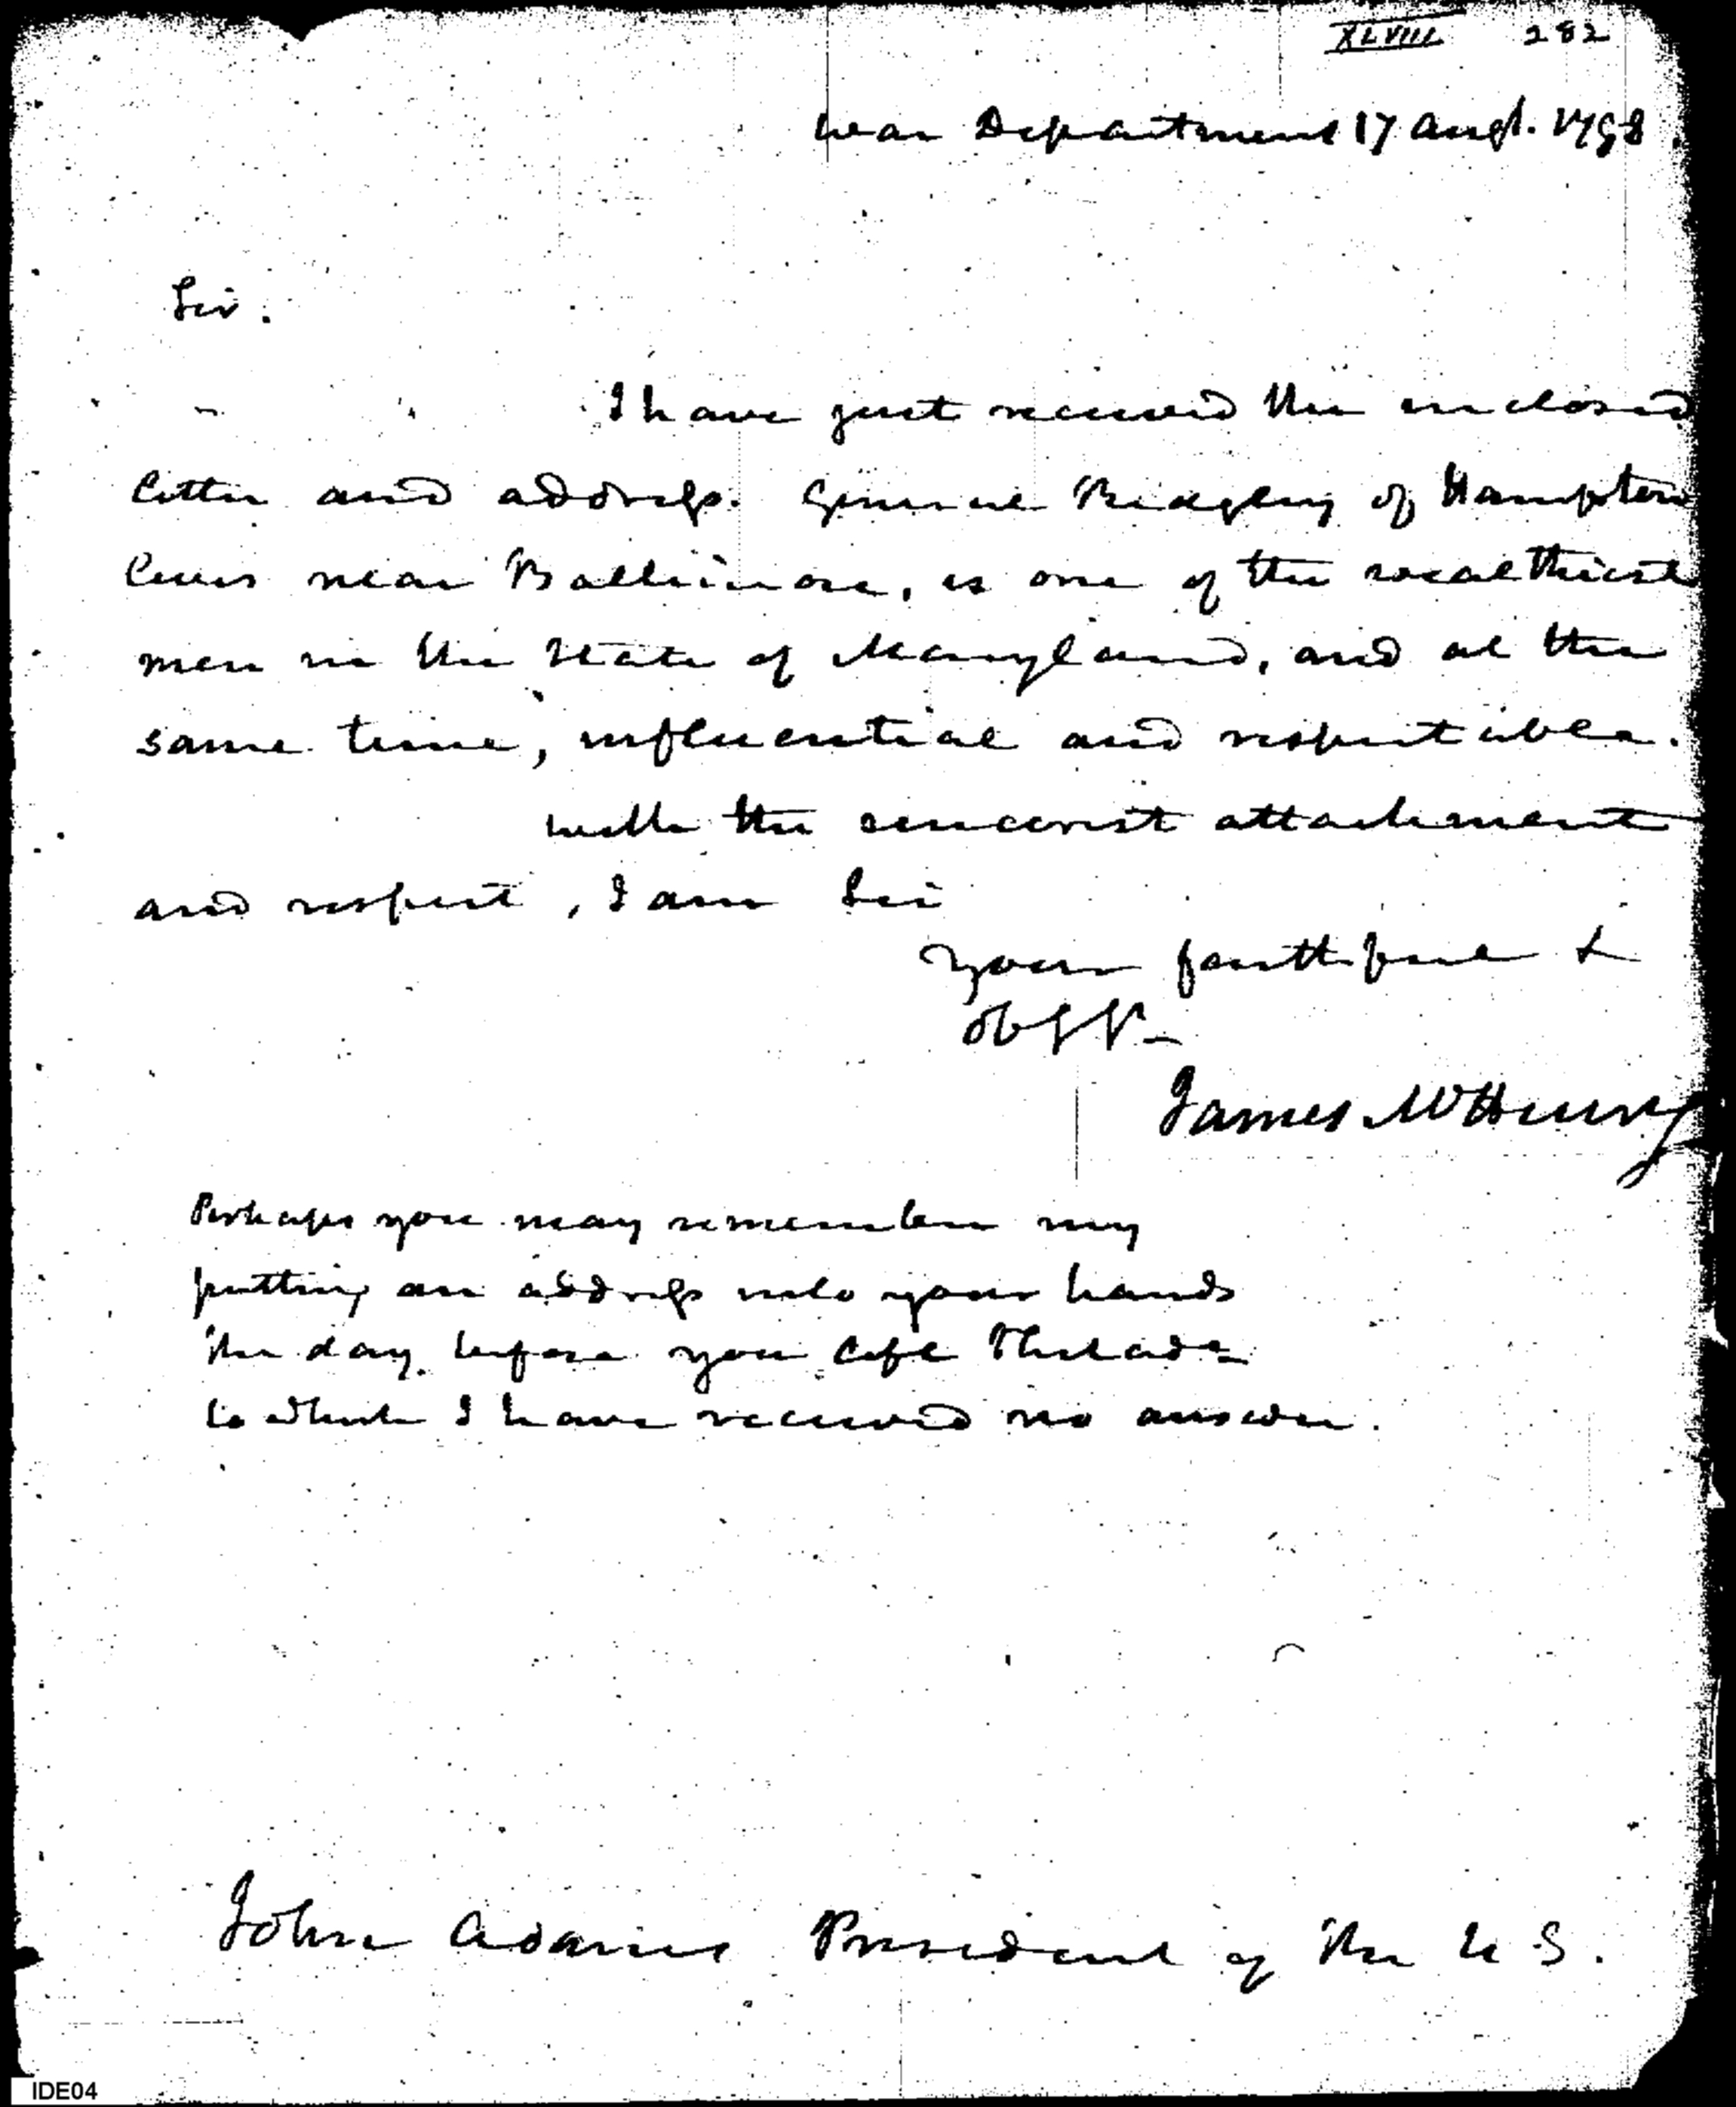 XLVIII 282
War Department 17 Augt. 1798.
Sir.
I have just received the inclosed
letter and address. General Ridgley of Hampton
lives near Baltimore, is one of the wealthiest
men in the State of Maryland, and at the
same time, influential and respectable.
With the sincerest attachment
and respect, I am Sir
your faithful &
James McHenry
Perhaps you may remember my
putting an address into your hands
the day before you left Philada
to which I have received no answer.
John Adams President of the U S.
IDE04